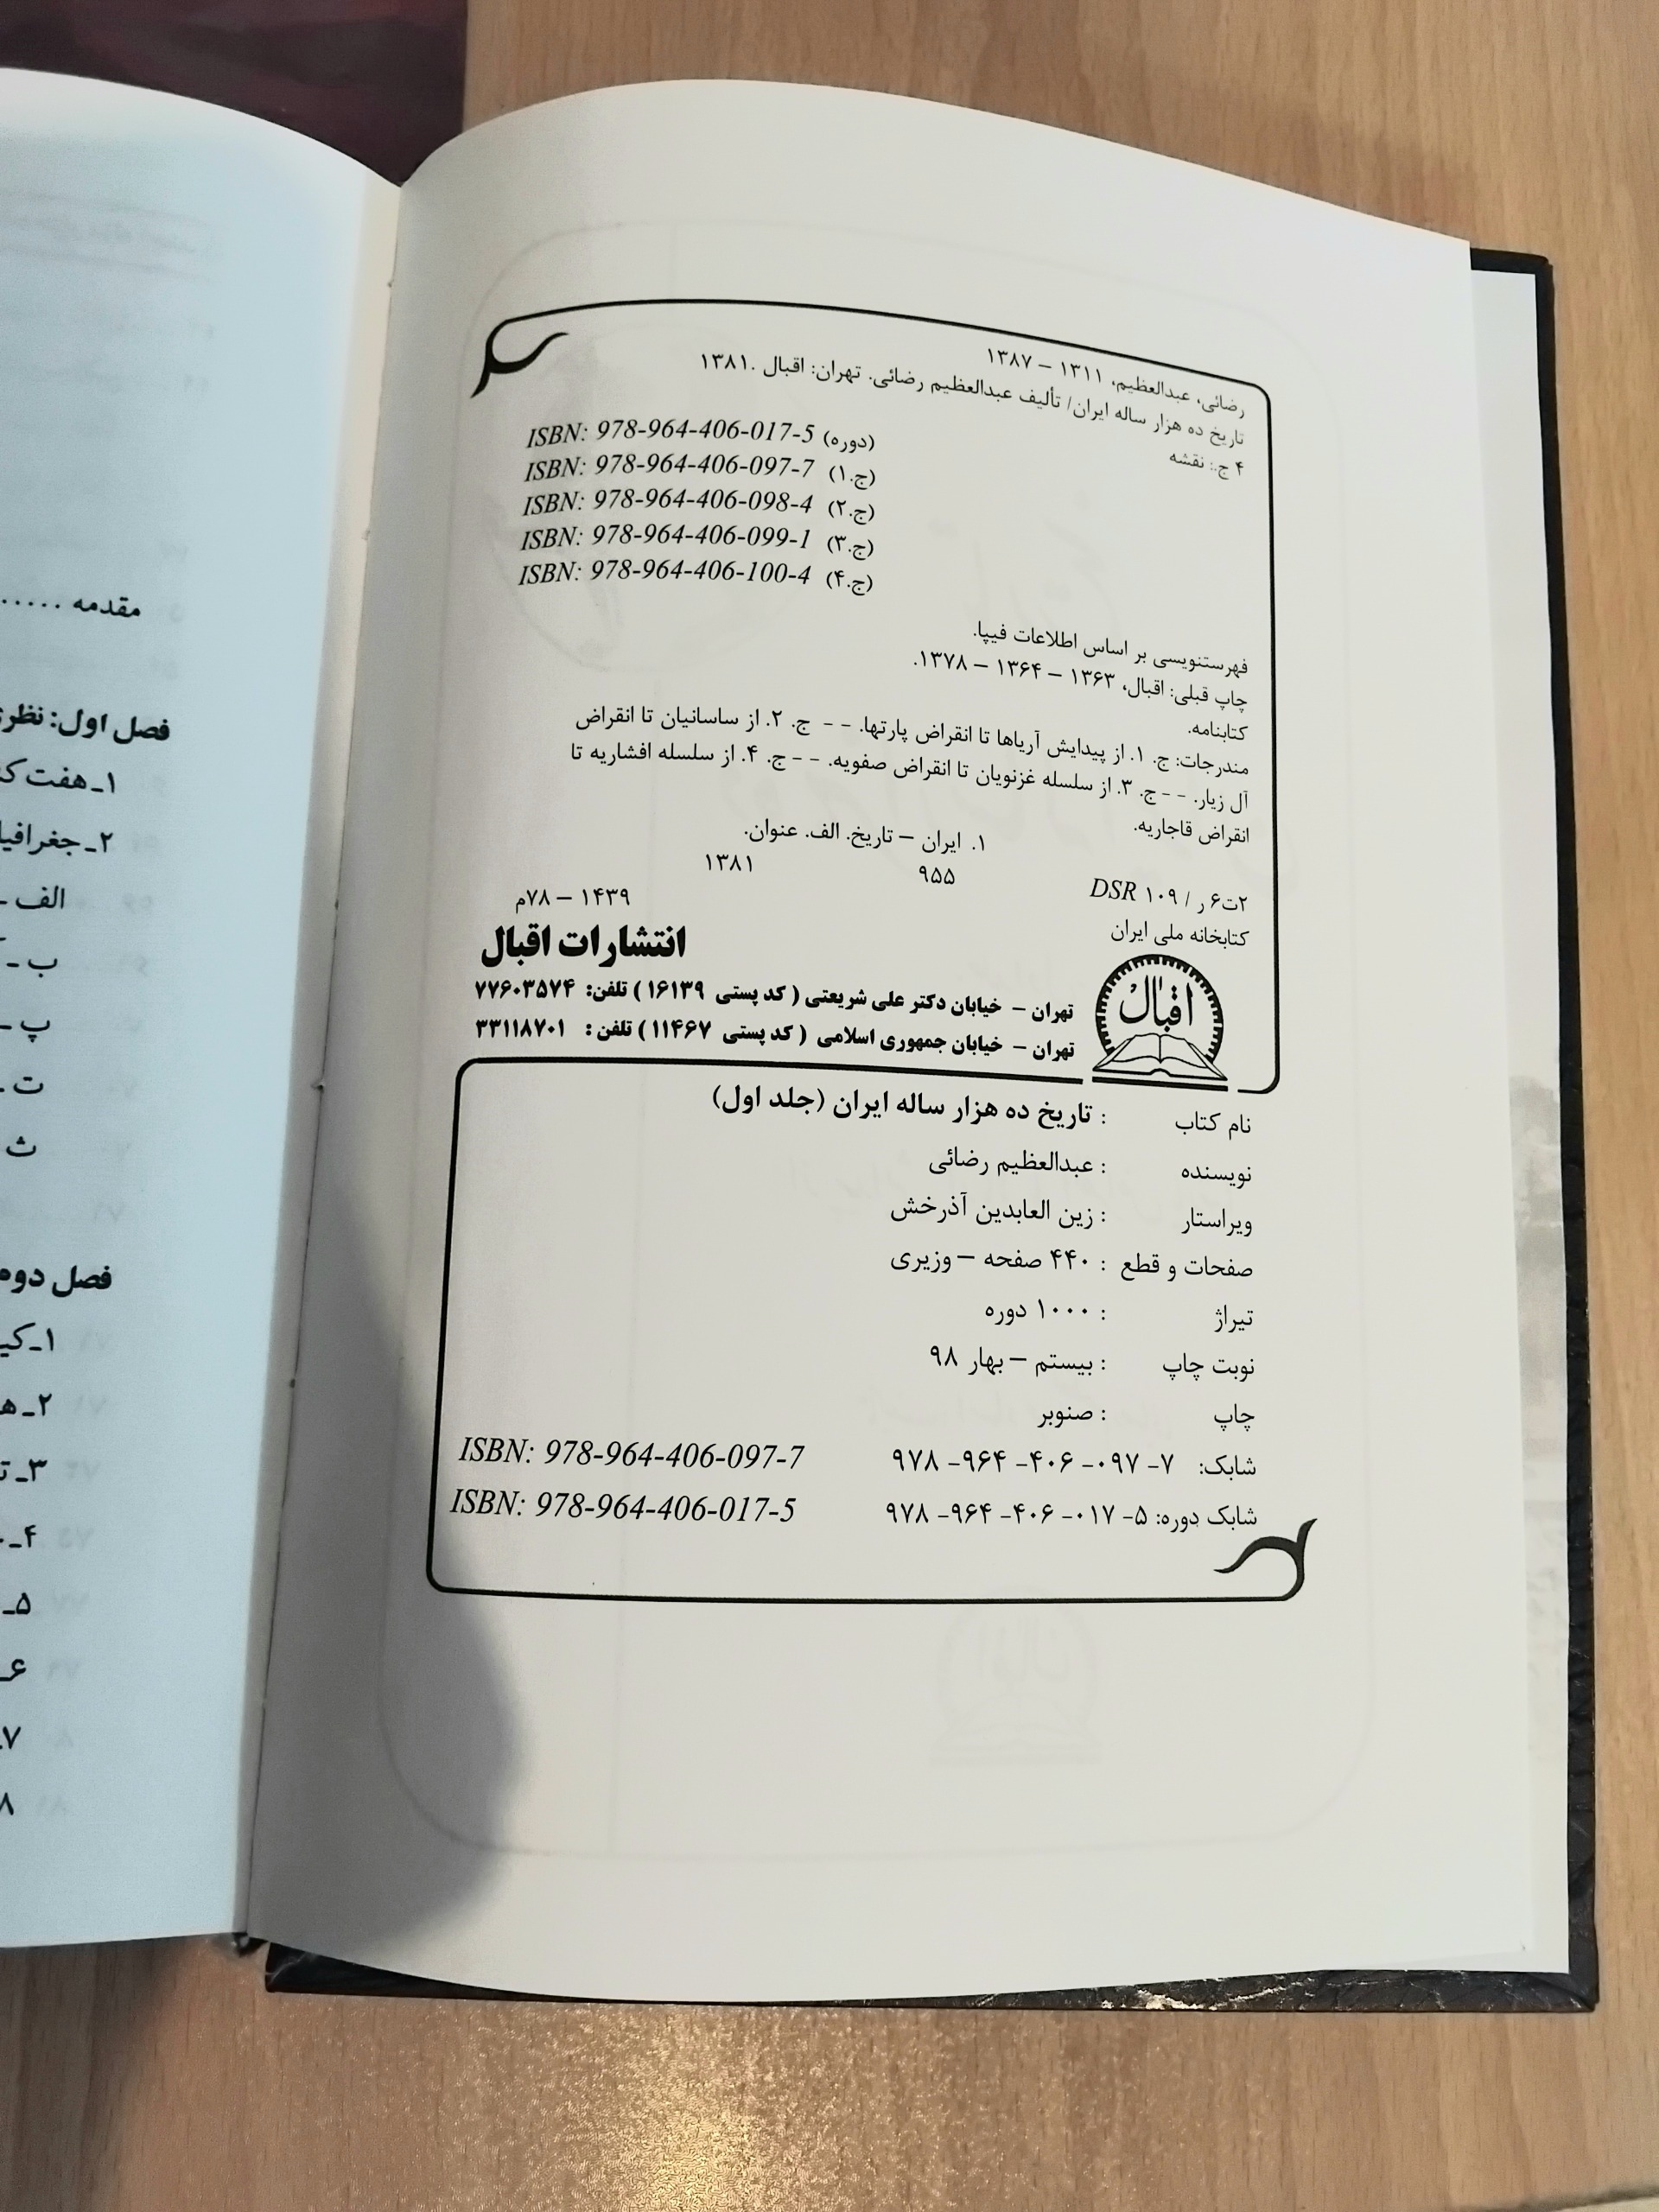 رضائی، عبدالعظیم، ۱۳۱۱ – ۱۳۸۷
تاریخ ده هزار ساله ایران/ تألیف عبدالعظیم رضائی. تهران: اقبال .۱۳۸۱
۴ ج.: نقشه
ISBN: 978-964-406-017-5 (دوره)
ISBN: 978-964-406-097-7 (ج.۱)
ISBN: 978-964-406-098-4 (ج.۲)
ISBN: 978-964-406-099-1 (ج.۳)
ISBN: 978-964-406-100-4 (ج.۴)
فهرستنویسی بر اساس اطلاعات فیپا.
چاپ قبلی: اقبال، ۱۳۶۳ – ۱۳۶۴ – ۱۳۷۸.
کتابنامه.
مندرجات: ج. ۱. از پیدایش آریاها تا انقراض پارتها. – – ج. ۲. از ساسانیان تا انقراض
آل زیار. – – ج. ۳. از سلسله غزنویان تا انقراض صفویه. – – ج. ۴. از سلسله افشاریه تا
انقراض قاجاریه.
۱. ایران – تاریخ. الف. عنوان.
۲ت۶ر / DSR ۱۰۹ ۹۵۵ ۱۳۸۱
کتابخانه ملی ایران ۱۴۳۹ – ۷۸م
انتشارات اقبال
اقبال
تهران – خیابان دکتر علی شریعتی ( کد پستی ۱۶۱۳۹ ) تلفن: ۷۷۶۰۳۵۷۴
تهران – خیابان جمهوری اسلامی ( کد پستی ۱۱۴۶۷ ) تلفن : ۳۳۱۱۸۷۰۱
نام کتاب : تاریخ ده هزار ساله ایران (جلد اول)
نویسنده : عبدالعظیم رضائی
ویراستار : زین العابدین آذرخش
صفحات و قطع : ۴۴۰ صفحه – وزیری
تیراژ : ۱۰۰۰ دوره
نوبت چاپ : بیستم – بهار ۹۸
چاپ : صنوبر
شابک: ۷- ۰۹۷- ۴۰۶- ۹۶۴- ۹۷۸ ISBN: 978-964-406-097-7
شابک دوره: ۵- ۰۱۷- ۴۰۶- ۹۶۴- ۹۷۸ ISBN: 978-964-406-017-5
مقدمه .....
فصل اول:
۱ـ هفت
۲ـ
الف -
ب -
پ -
ت -
ث
فصل دوم
۱ـ
۲ـ
۳ـ
۴ـ
۵ـ
۶ـ
۷ـ
۸